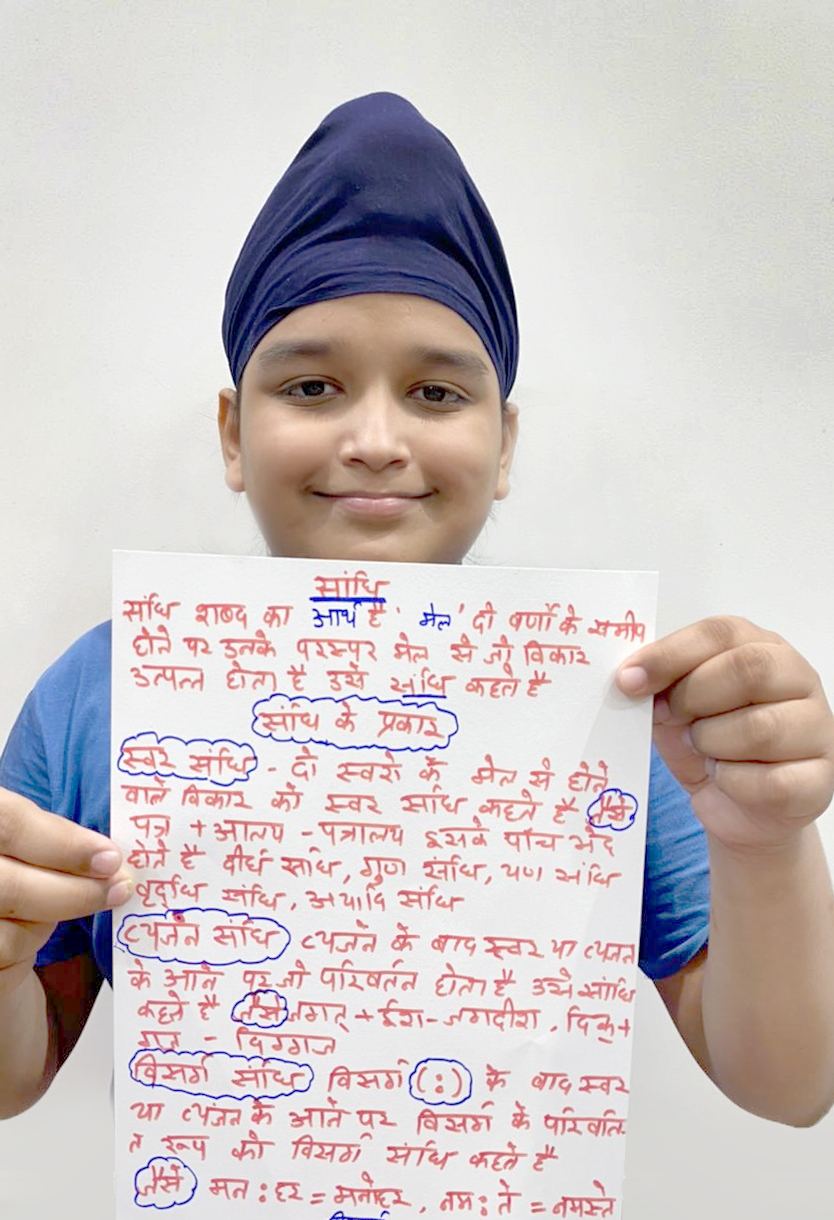 सांधि
संधि शब्द का आर्थ है ' मेल ' दो वर्णों के समीप
होने पर उनके परस्पर मेल से जो विकार
उत्पत्न होता है उसे संधि कहते है
संधि के प्रकार
स्वर संधि - दो स्वरो के मेल से होने
वाले विकार को स्वर संधि कहते है जैसे
पत्र + आलय - पत्रालय इसके पाँच भेद
होते है दीर्घ संधि, गुण संधि, यण संधि
वृद्धि संधि, अयादि संधि
व्यजंन संधि व्यजंन के बाद स्वर या व्यजन
के आने पर जो परिवर्तन होता है उसे सांधि
कहते है जैसे जगत् + ईश - जगदीश, दिक् +
गज - दिग्गज
विसर्ग संधि विसर्ग (:) के बाद स्वर
या व्यंजन के आने पर विसर्ग के परिवर्ति-
त रूप को विसर्ग संधि कहते है
जैसे मन : हर = मनोहर, नम : ते = नमस्ते